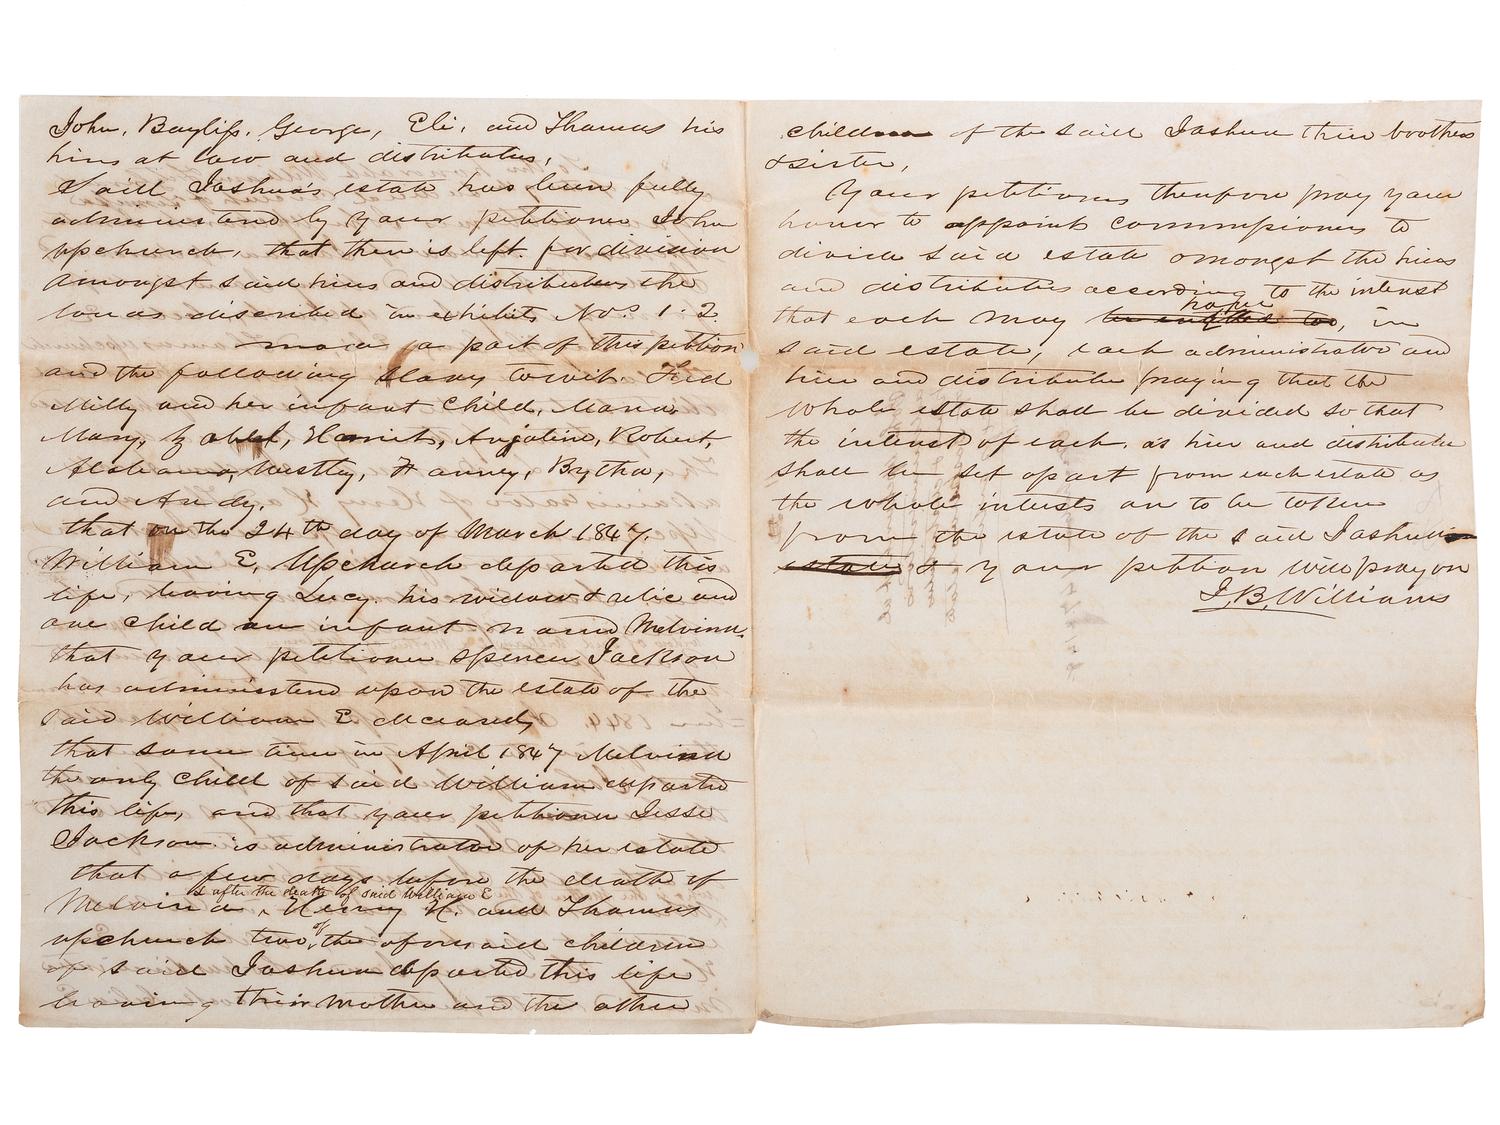 John, Bayliss, George, Eli, and Thomas his
heirs at law and distributees,
Said Joshua's estate has been fully
administered by your petitioner John
Upchurch, that there is left for division
amongst said heirs and distributees the
lands described in exhibits No.s 1. 2.
made a part of this petition
and the following slaves towit. Fred
Milly and her infant child, Maria
Mary, Harriet, Angeline, Robert,
Alabama, Westley, Fanney, Bytha,
and Andy.
that on the 24th day of March 1847.
William E. Upchurch departed this
life, leaving Lucy his widow & relic and
one child an infant named Melvina.
that your petitioner Spencer Jackson
has administered upon the estate of the
said William E deceased,
that some time in April 1847 Melvina
the only child of said William departed
this life, and that your petitioner Jesse
Jackson is administrator of her estate
that a few days before the death of
& after the death of said William E
Melvina, Henry H. and Thomas
Upchurch two of the aforesaid children
of said Joshua departed this life
leaving their mother and the other
children of the said Joshua their brothers
& sister,
Your petitioners therefore pray your
honor to appoint commissioners to
divide said estate amongst the heirs
and distributees according to the interest
that each may have be entitled to, in
said estate, each administrator and
heir and distributee praying that the
whole estate shall be divided so that
the interest of each, as heir and distributee
shall be set apart from each estate as
the whole interests are to be taken
from the estate of the said Joshua
estate & your petition will pray on
J. B. Williams